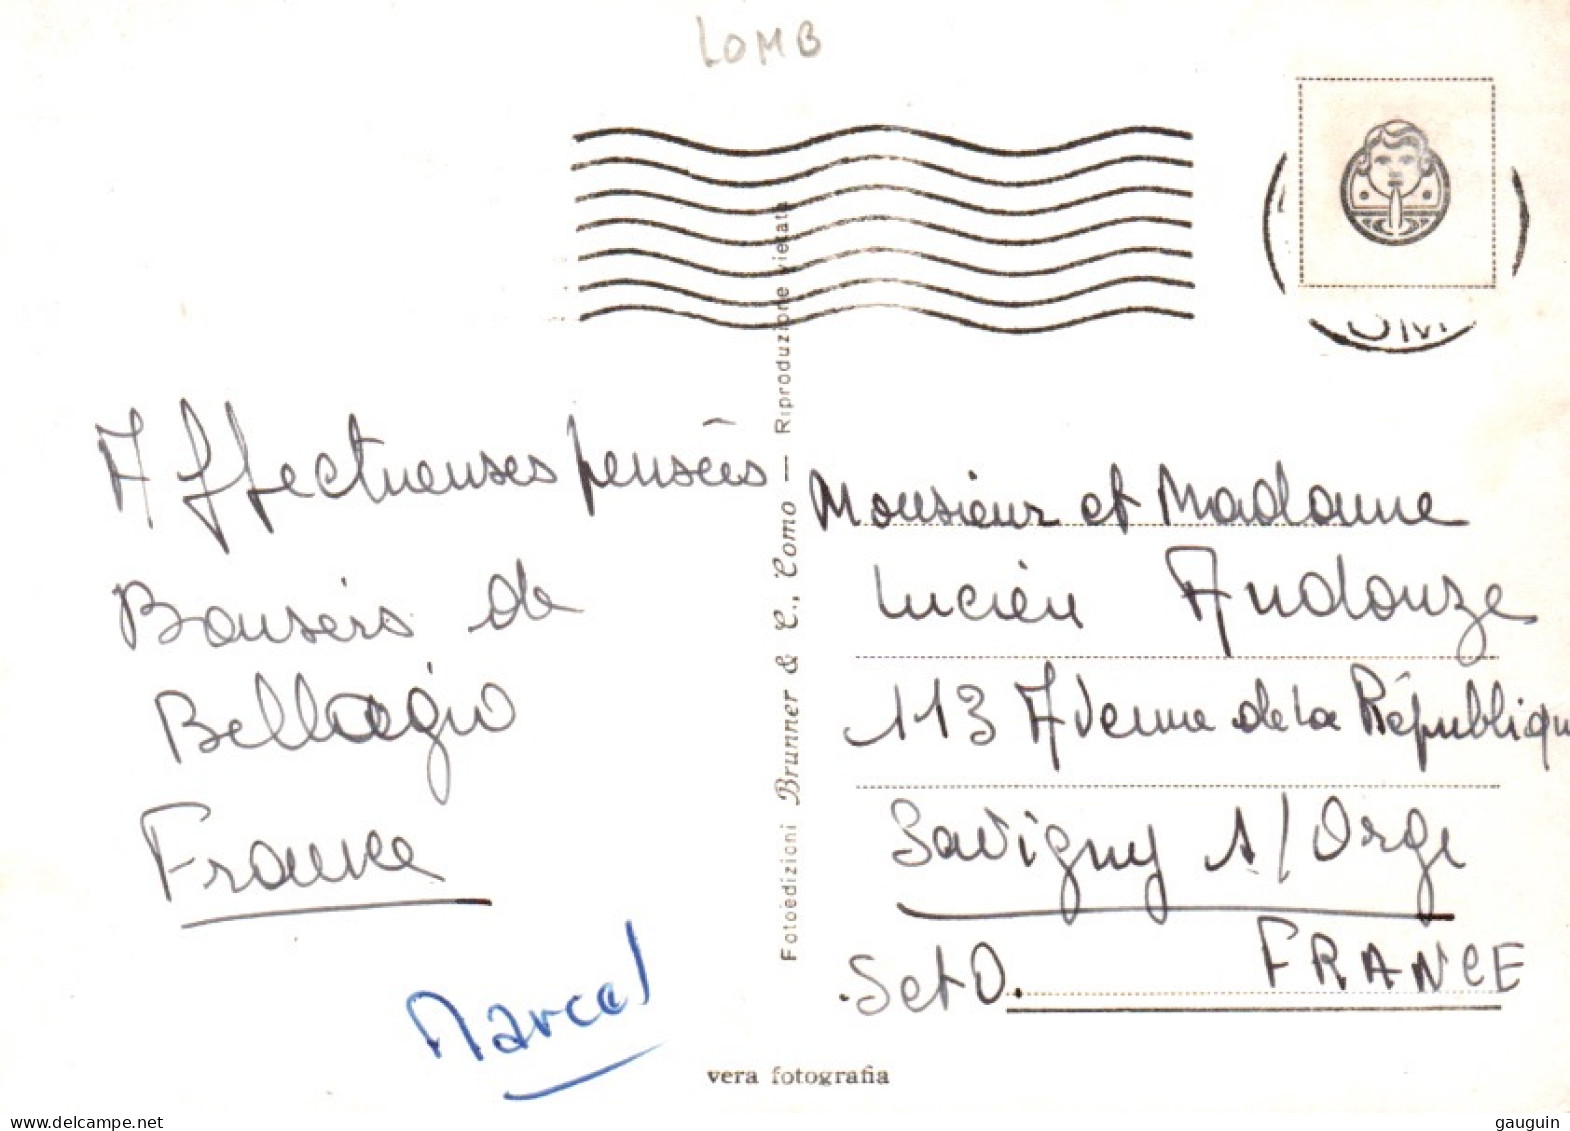 LOMB
Affectueuses pensées
Bonsérs de
Bellagio
France
Marcel
Fotoedizioni Brunner & C., Como — Riproduzione vietata
Monsieur et Madame
Lucien Audouze
113 Avenue de la Républiqu
Savigny s/Orge
Set O. FRANCE
vera fotografia
delcampe.net
gauguin